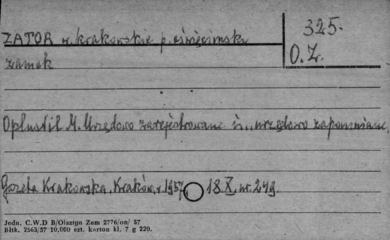 ZATOR w. krakowskie p. oświęcimski
325.
zamek
O.Z.
Oplustil M. Urzędowo zarejestrowane i „urzędowo zapomniane
Gazeta Krakowska, Kraków, r. 1957, 18 X, nr 249.
Jedn. C.W.D B/Olsztyn Zam 2776/on/ 57
Bltk. 2563/57 10,000 szt. karton kl. 7 g 220.